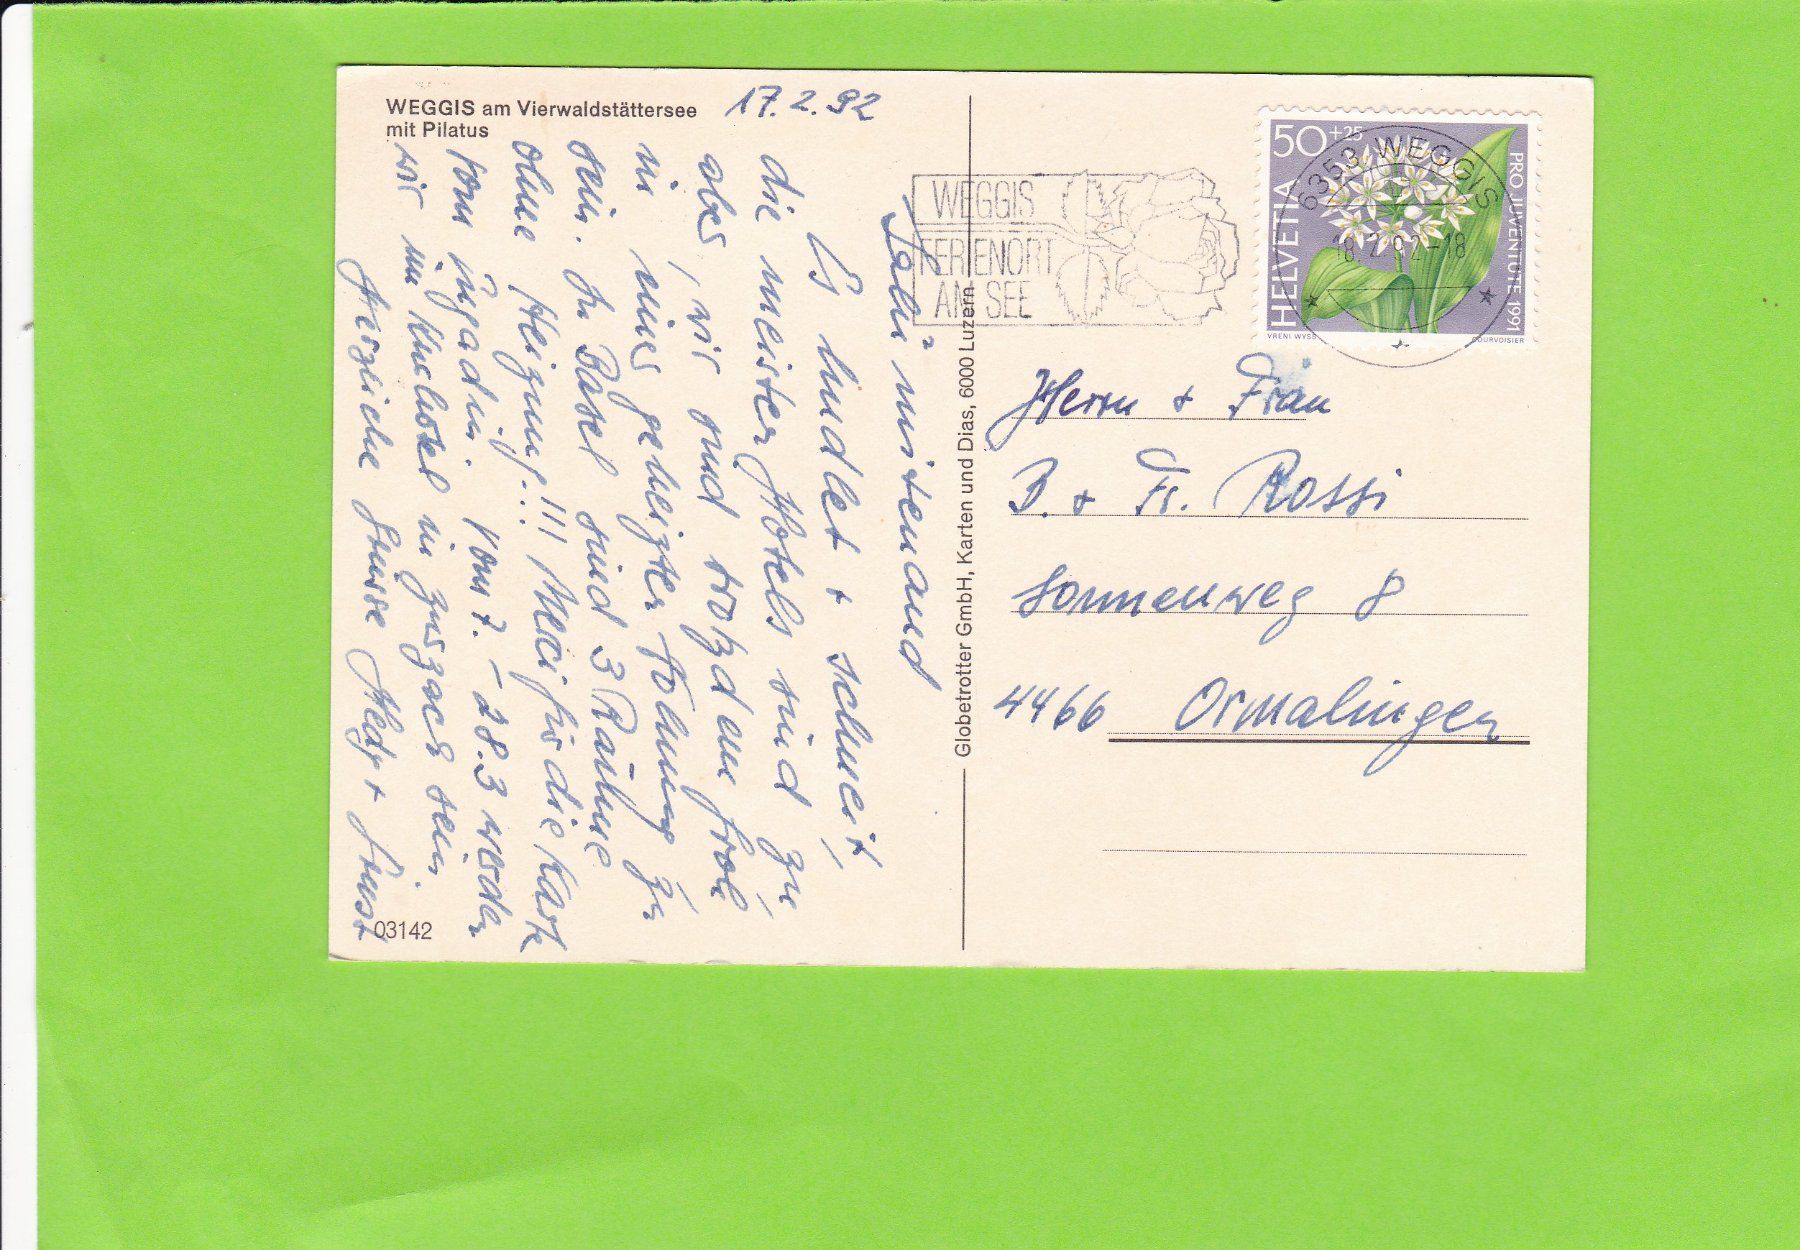 WEGGIS am Vierwaldstättersee
mit Pilatus
17.2.92
Salü mitenand
Es hudlet + schneit,
die meisten Hotels sind zu
aber, wir sind trotzdem froh
in einer geheizten Wohnung zu
sein. In Basel sind 3 Räume
ohne Heizung!!! Merci für die Karte
vom Engadin. Vom 7. – 28.3 werden
wir im in Zurzach sein.
Herzliche Grüsse Hedy + Ernst
03142
Globetrotter GmbH, Karten und Dias, 6000 Luzern
WEGGIS
FERIENORT
AM SEE
6353 WEGGIS
18.2.92-18
50+25
HELVETIA
PRO JUVENTUTE 1991
VRENI WYSS
COURVOISIER
Herrn + Frau
B. + Fr. Rossi
Sonnenweg 8
4466 Ormalingen